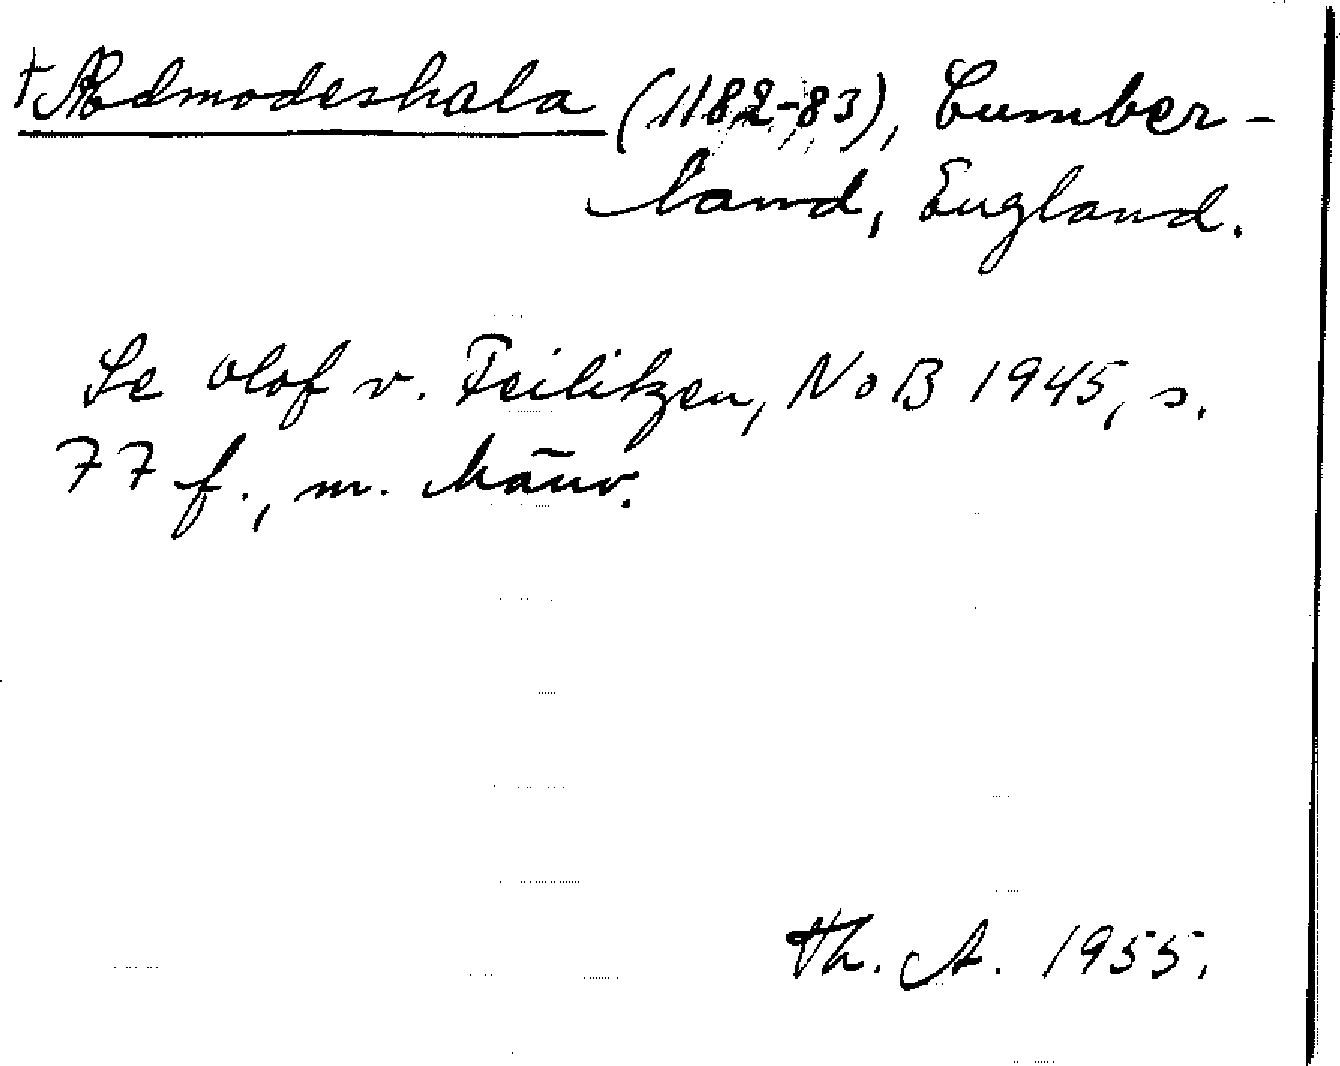 †Ædmodeshala (1182-83), Cumber-
land, England.
Se Olof v. Feilitzen, NoB 1945, s.
77 f., m. hänv.
Th. A. 1955.